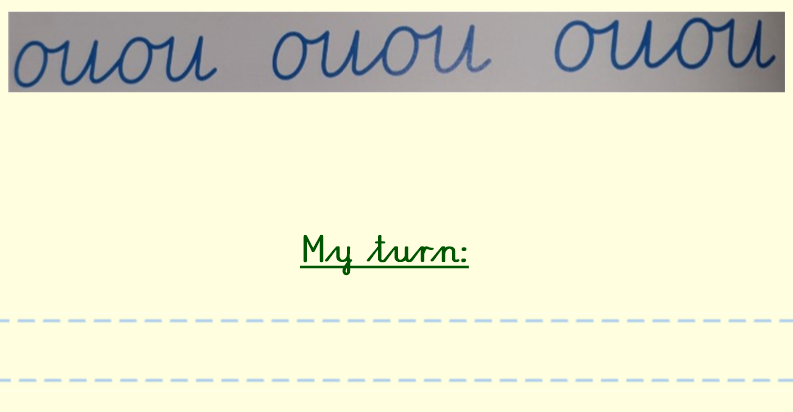 ouou ouou ouou
My turn: